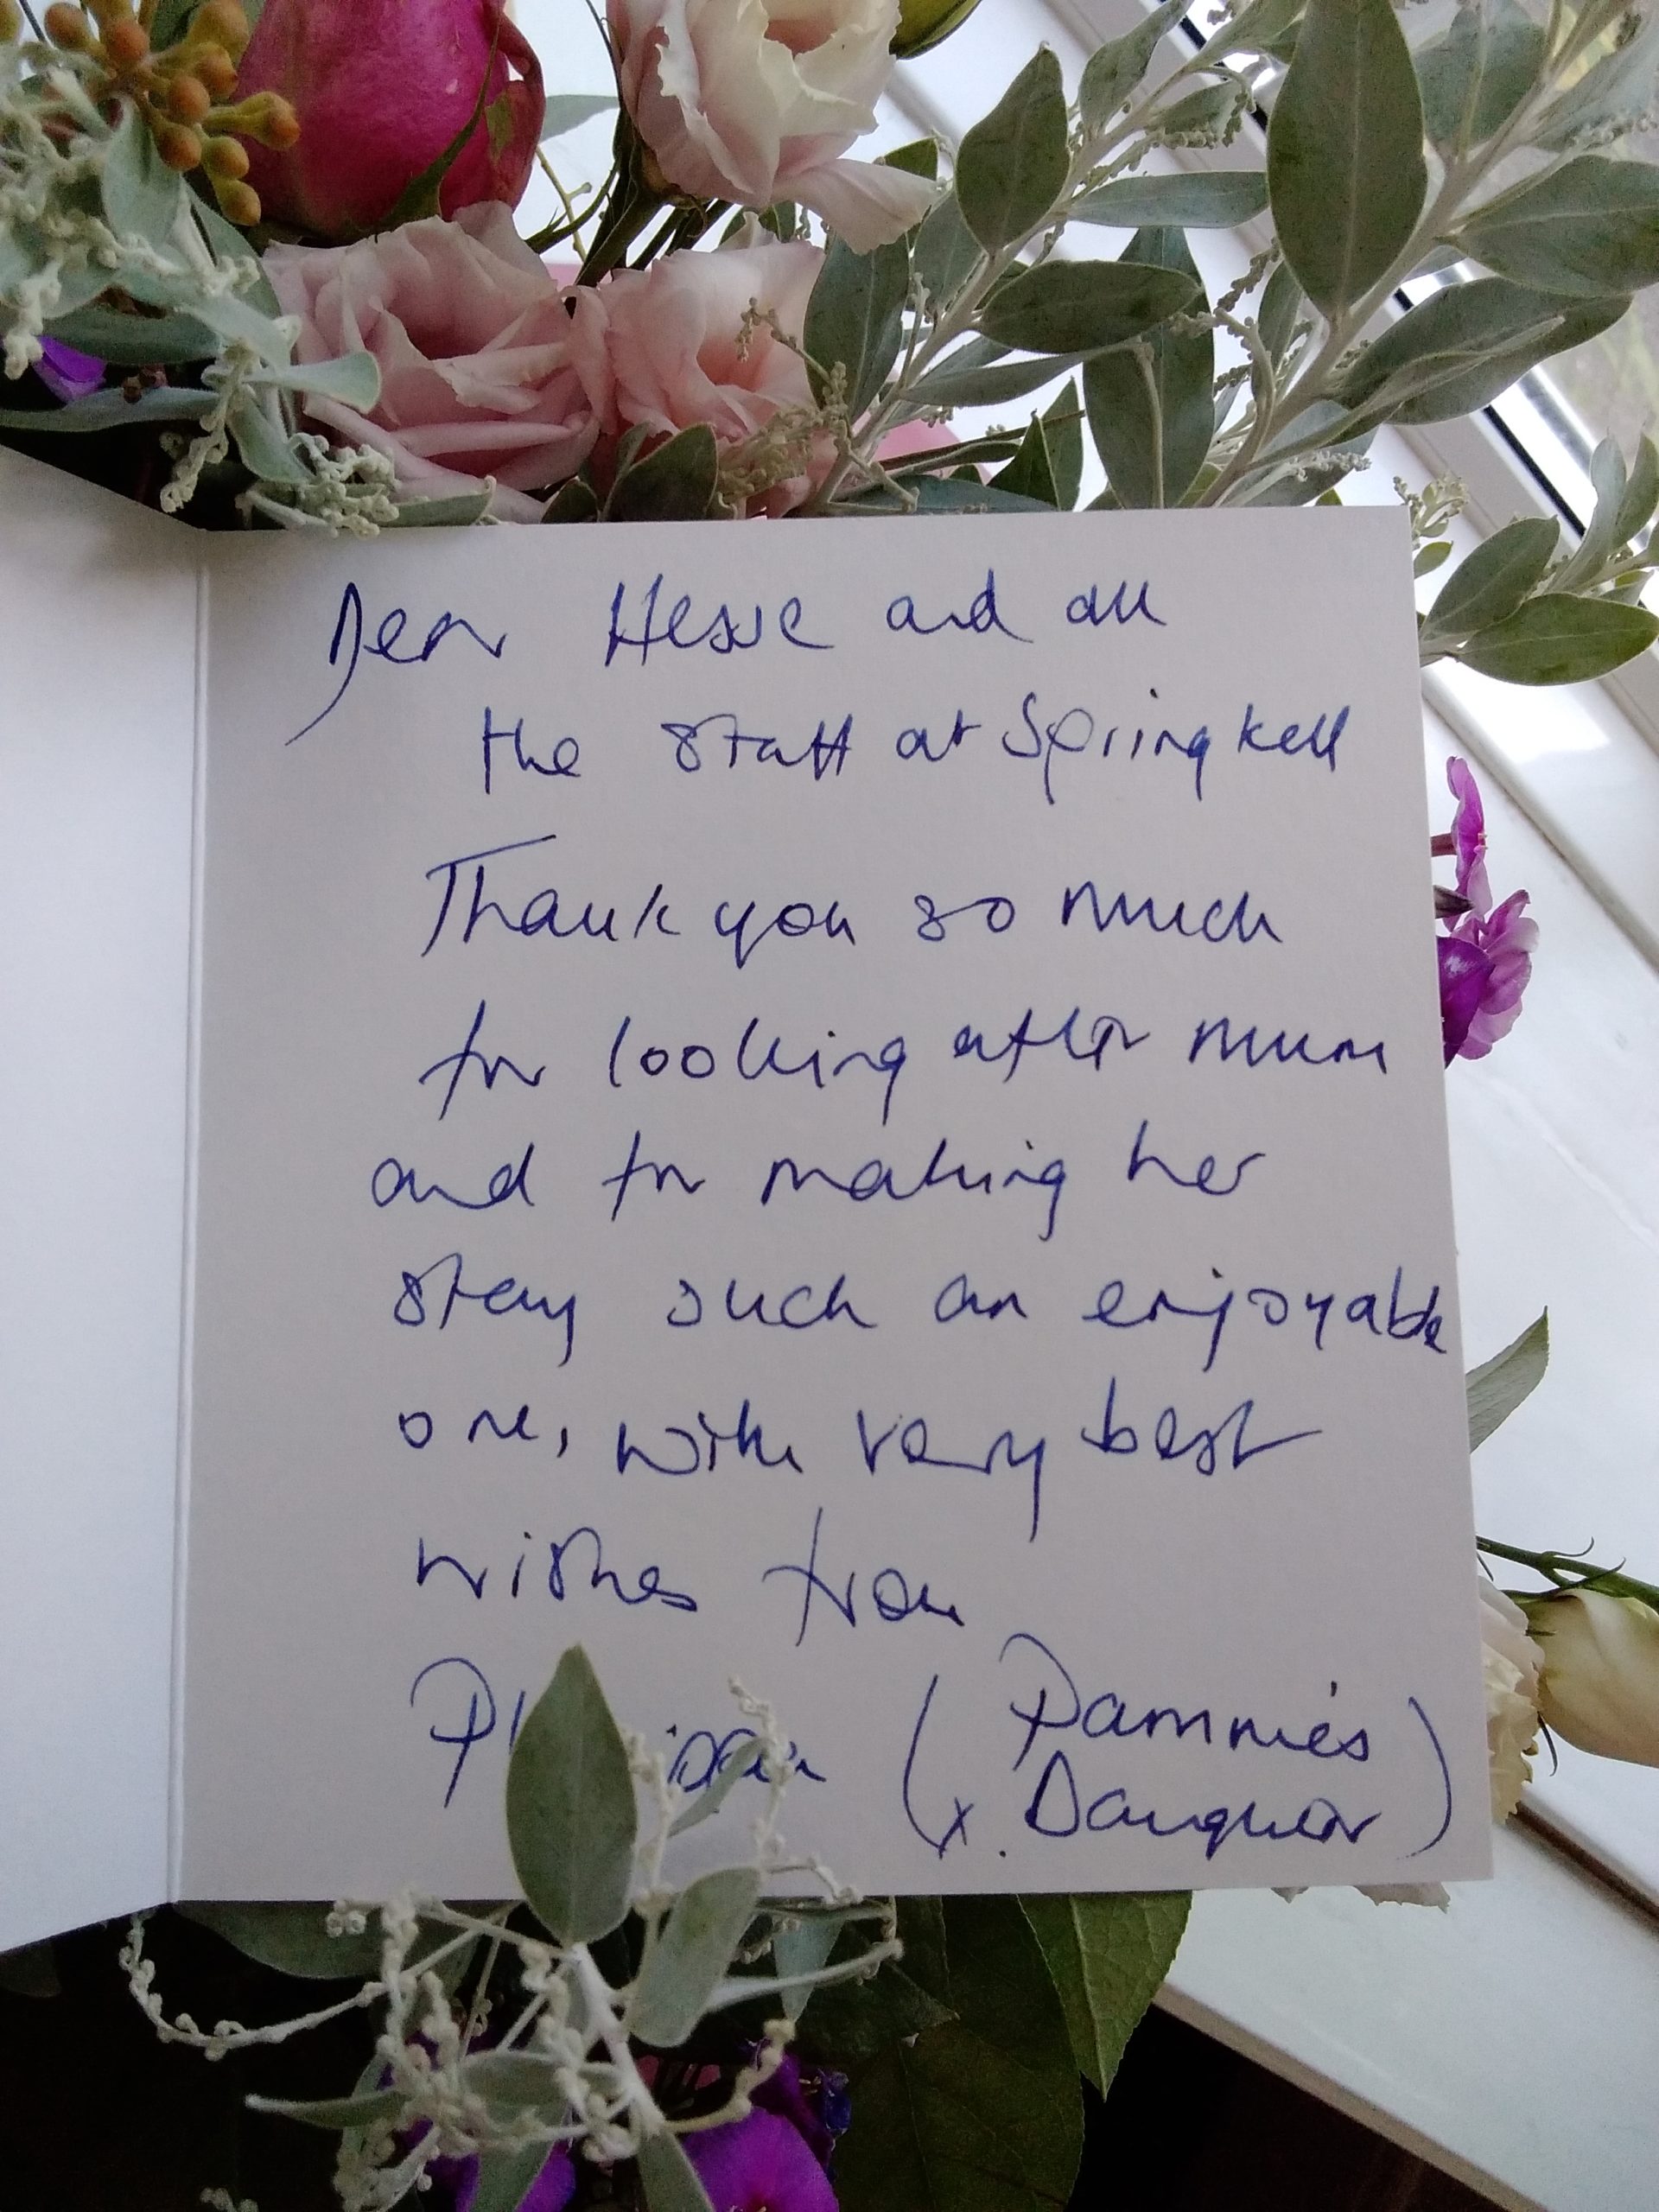 Dear Hesse and all
the staff at Springkell
Thank you so much
for looking after mum
and for making her
stay such an enjoyable
one, with very best
wishes from
(Pammie's
x. Daughter)